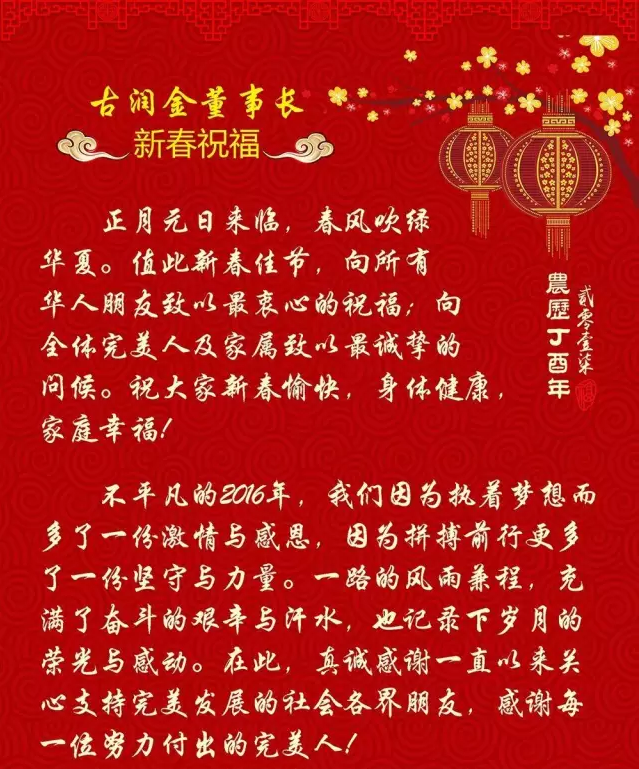 古润金董事长
新春祝福
正月元日来临，春风吹绿
华夏。值此新春佳节，向所有
华人朋友致以最衷心的祝福；向
全体完美人及家属致以最诚挚的
问候。祝大家新春愉快，身体健康，
家庭幸福！
贰零壹柒
農歷丁酉年
不平凡的2016年，我们因为执着梦想而
多了一份激情与感恩，因为拼搏前行更多
了一份坚守与力量。一路的风雨兼程，充
满了奋斗的艰辛与汗水，也记录下岁月的
荣光与感动。在此，真诚感谢一直以来关
心支持完美发展的社会各界朋友，感谢每
一位努力付出的完美人！